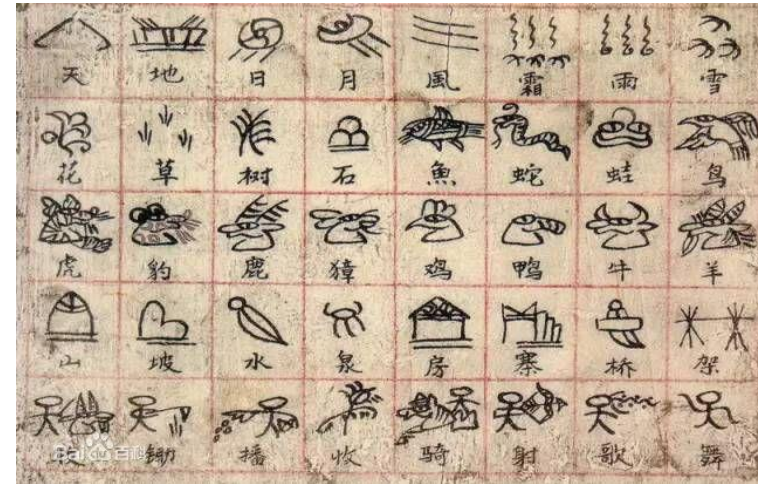 天 地 日 月 風 霜 雨 雪
花 草 树 石 魚 蛇 蛙 鸟
虎 豹 鹿 獐 鸡 鸭 牛 羊
山 坡 水 泉 房 寨 桥 架
锄 播 收 骑 射 歌 舞
Bai 百科